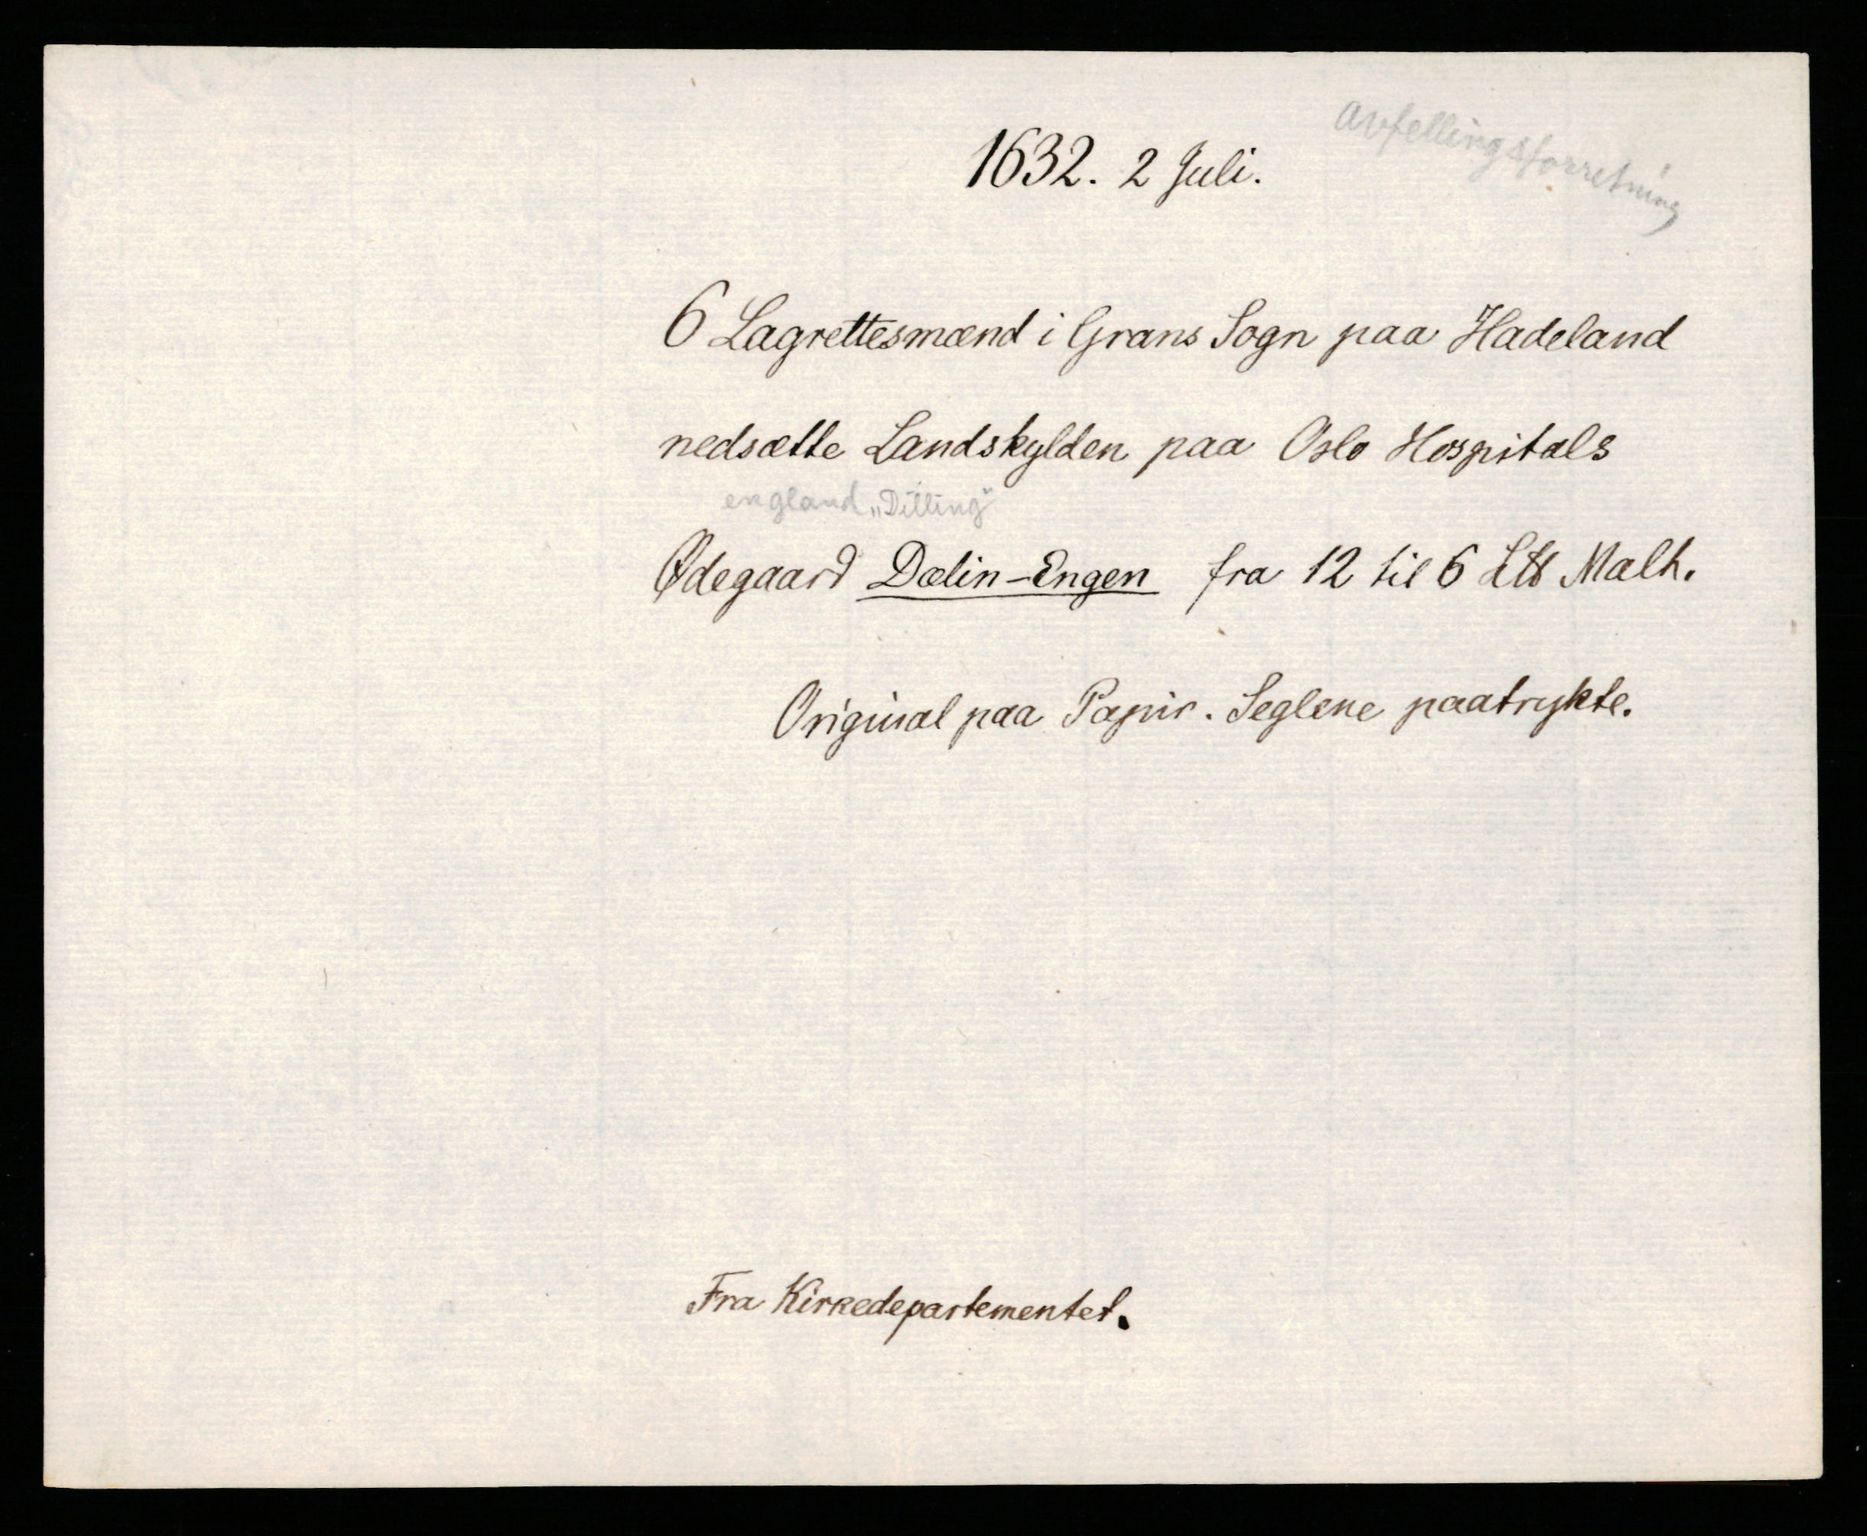 1632. 2 Juli.
avfellingsforretning
6 Lagrettesmænd i Grans Sogn paa Hadeland
nedsætte Landskylden paa Oslo Hospitals
england „Dilling"
Ødegaard Dælin-Engen fra 12 til 6 L℔ Malh.
Original paa Papir. Seglene paatrykte.
Fra Kirkedepartementet.